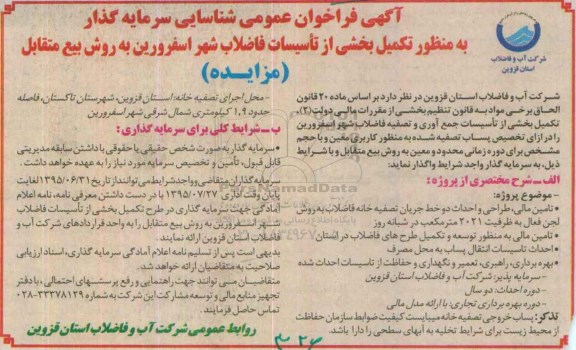 آگهی فراخوان عمومی شناسایی سرمایه گذار
به منظور تکمیل بخشی از تأسیسات فاضلاب شهر اسفرورین به روش بیع متقابل
(مزایده)
شرکت آب و فاضلاب
استان قزوین
شرکت آب و فاضلاب استان قزوین در نظر دارد بر اساس ماده ۲۰ قانون
الحاق برخی مواد به قانون تنظیم بخشی از مقررات مالی دولت (۲)،
تکمیل بخشی از تأسیسات جمع آوری و تصفیه فاضلاب شهر اسفرورین
را در ازای تخصیص پساب تصفیه شده به منظور کاربری معین و با حجم
مشخص برای دوره زمانی محدود و معین به روش بیع متقابل و با شرایط
ذیل، به سرمایه گذار واجد شرایط واگذار نماید:
الف ـ شرح مختصری از پروژه:
- موضوع پروژه:
• تامین مالی، طراحی و احداث دو خط جریان تصفیه خانه فاضلاب به روش
لجن فعال به ظرفیت ۲۰۲۱ مترمکعب در شبانه روز
• تامین مالی به منظور توسعه و تکمیل طرح های فاضلاب در استان
• احداث تاسیسات انتقال پساب به محل مصرف
• بهره برداری، راهبری، تعمیر و نگهداری و حفاظت از تاسیسات احداث شده
- سرمایه پذیر: شرکت آب و فاضلاب استان قزوین
- دوره احداث: دو سال
- دوره بهره برداری تجاری: با ارائه مدل مالی
تذکر: پساب خروجی تصفیه خانه میبایست کیفیت ضوابط سازمان حفاظت
از محیط زیست برای شرایط تخلیه به آبهای سطحی را دارا باشد.
- محل اجرای تصفیه خانه: استان قزوین، شهرستان تاکستان، فاصله
حدود ۱,۹ کیلومتری شمال شرقی شهر اسفرورین
ب ـ شرایط کلی برای سرمایه گذاری:
• سرمایه گذار به صورت شخص حقیقی یا حقوقی با داشتن سابقه مدیریتی
قابل قبول، تأمین و تخصیص سرمایه مورد نیاز را به عهده خواهد داشت.
سرمایه گذاران متقاضی و واجد شرایط می توانند از تاریخ ۱۳۹۵/۰۶/۳۱ لغایت
پایان وقت اداری ۱۳۹۵/۰۷/۲۷ با در دست داشتن معرفی نامه، نامه اعلام
آمادگی جهت سرمایه گذاری در طرح تکمیل بخشی از تأسیسات فاضلاب
شهر اسفرورین به روش بیع متقابل را به واحد قراردادهای شرکت آب و
فاضلاب استان قزوین ارائه نمایند.
بدیهی است پس از تسلیم نامه اعلام آمادگی سرمایه گذاری، اسناد ارزیابی
صلاحیت به متقاضیان ارائه خواهد شد.
متقاضیان می توانند جهت راهنمایی و رفع پرسشهای احتمالی، با دفتر
تجهیز منابع مالی و توسعه مشارکت این شرکت به شماره ۳۳۳۷۸۱۲۹-۰۲۸
تماس حاصل فرمایند.
روابط عمومی شرکت آب و فاضلاب استان قزوین
ParsNamadData